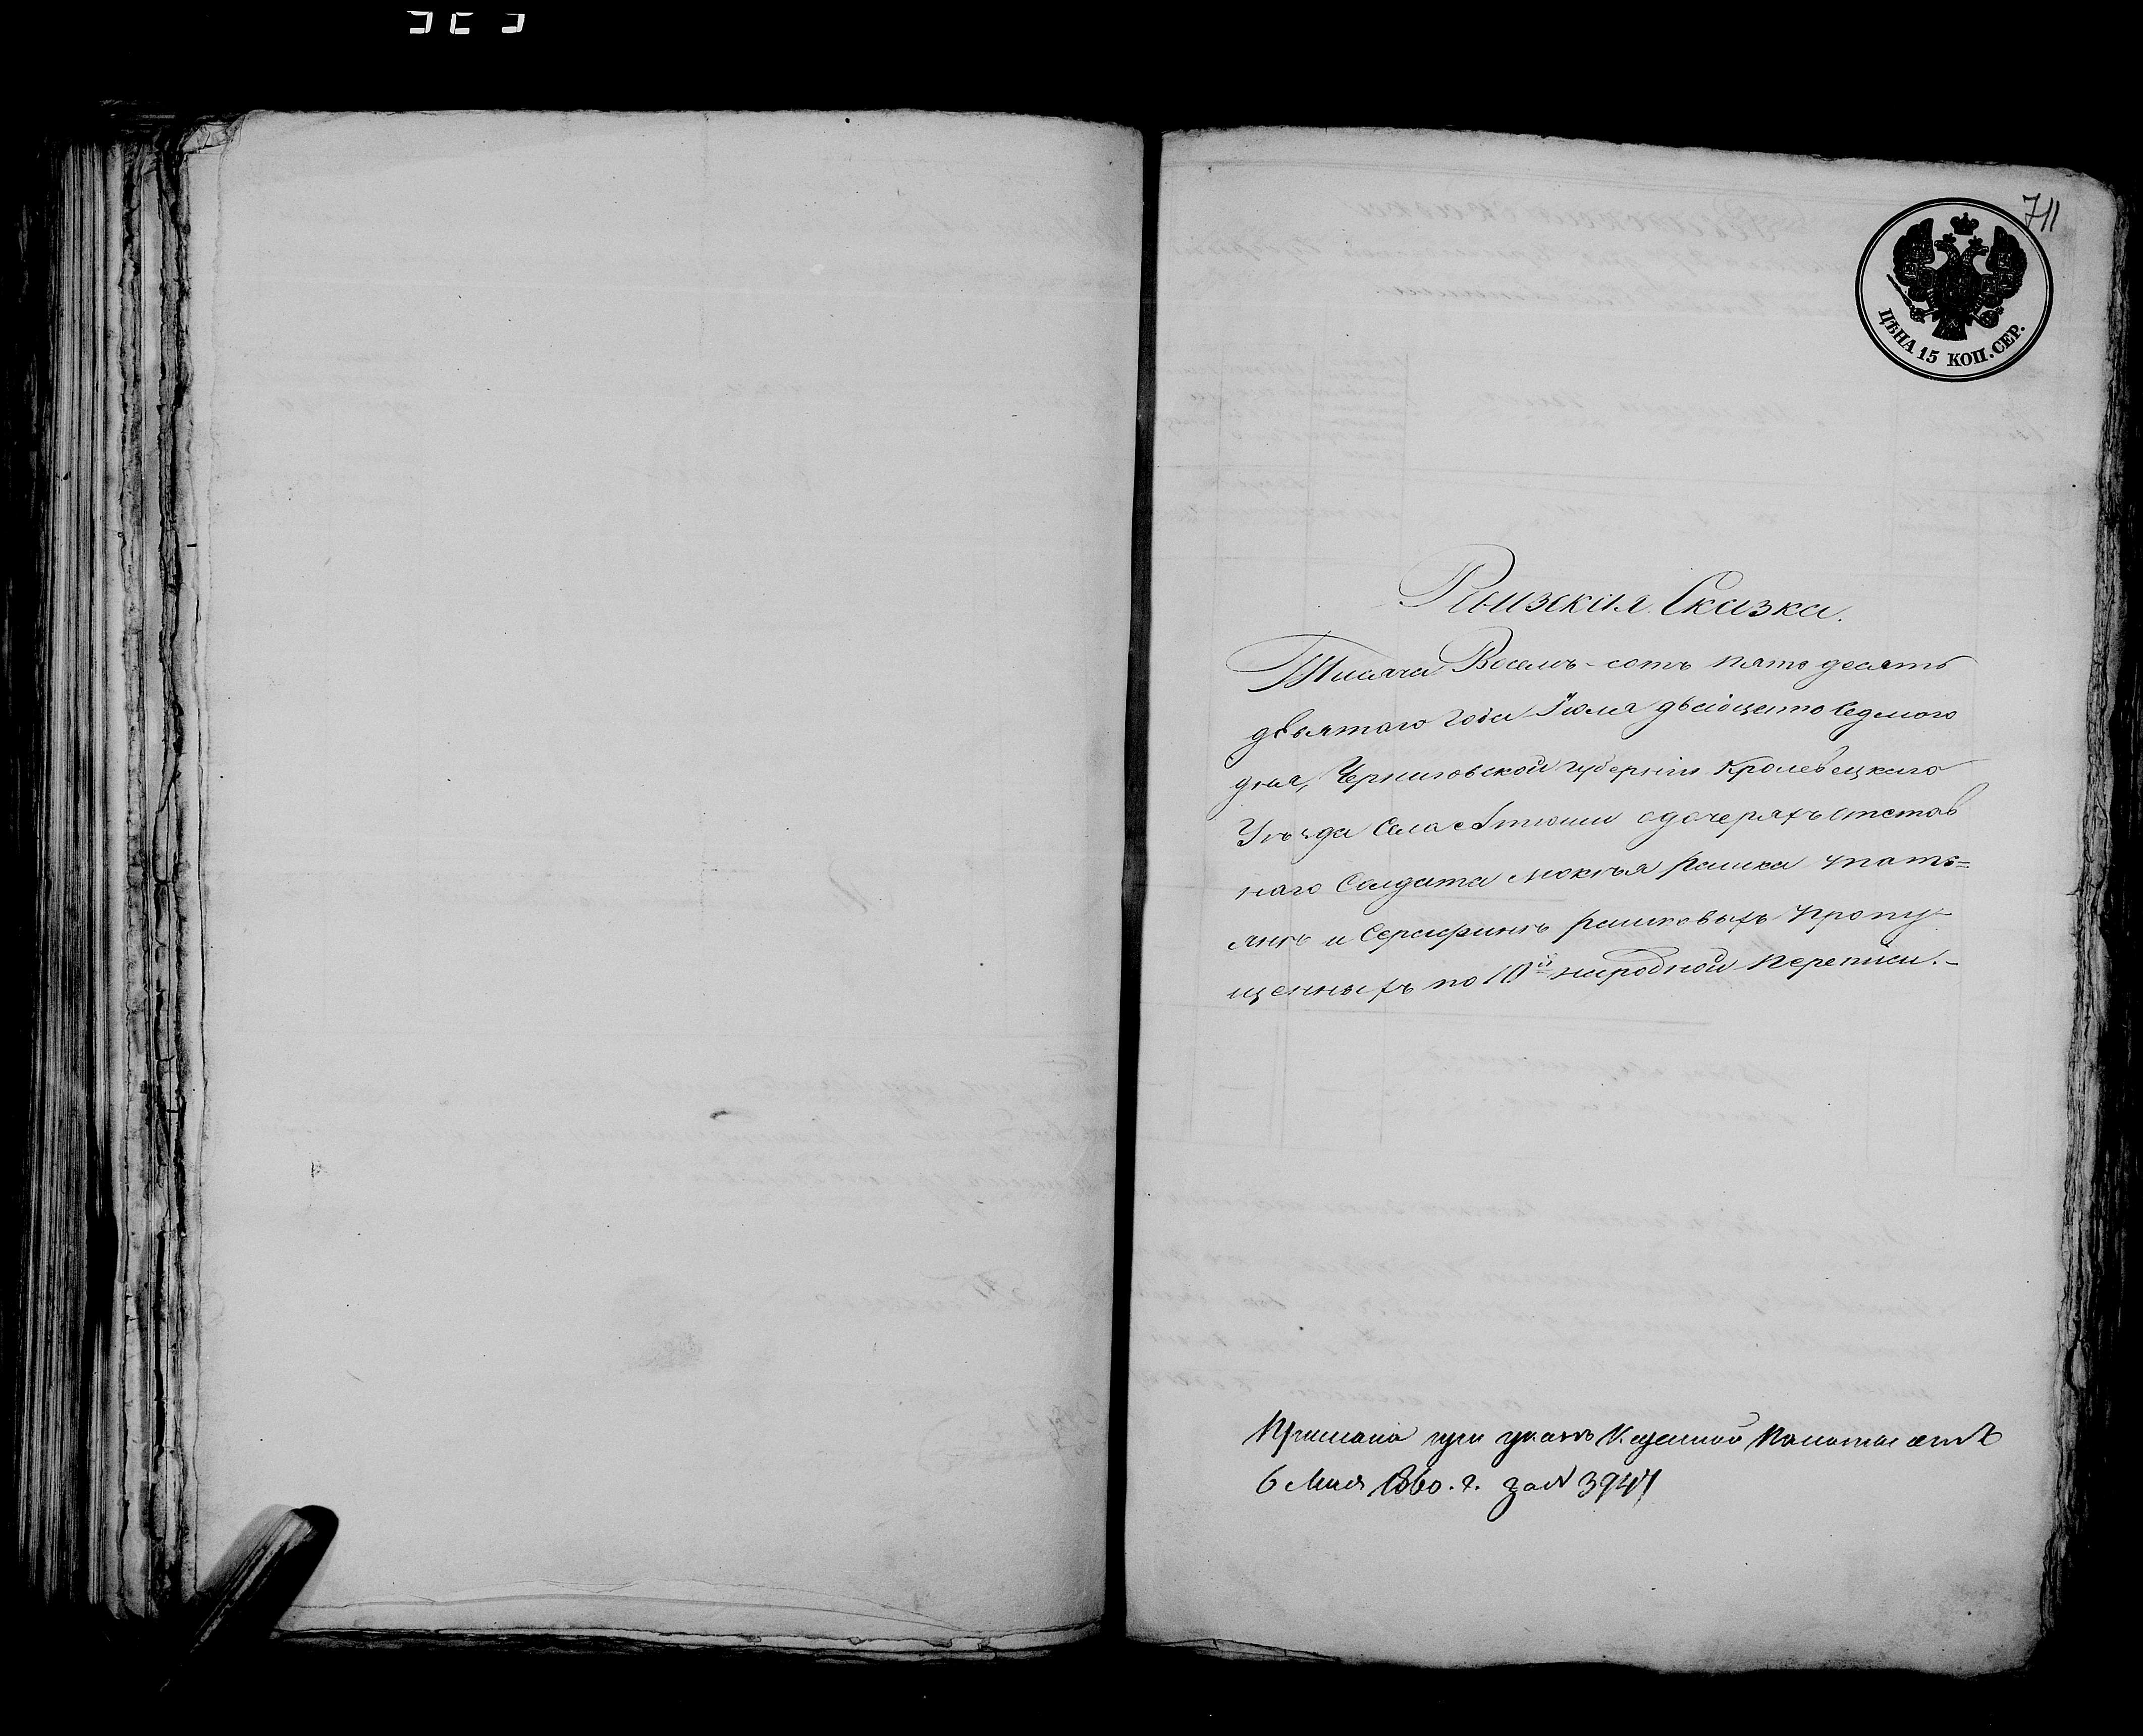 711
ЦѢНА 15 КОП. СЕР.
Ревизская Сказка.
Тысяча Восемъ-сотъ пятьдесятъ
девятаго года Іюля двадцать седмого
дня, Черниговской губерніи Кролевецкого
Уѣзда Села Атюши о дочеряхъ отстав
наго Солдата Мокѣя Рашка Тать=
янѣ и Серафимѣ Рашковыхъ пропу-
щенныхъ по 10й народной переписи.-
Прислана при указѣ Казенной Палаты отъ
6 Мая 1860. г. за № 3947